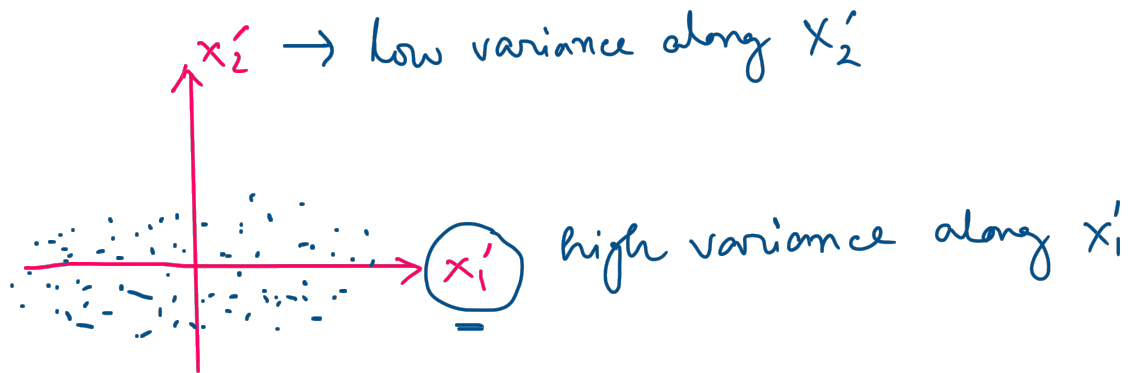 x₂′ → Low variance along X₂′
x₁′ high variance along X₁′